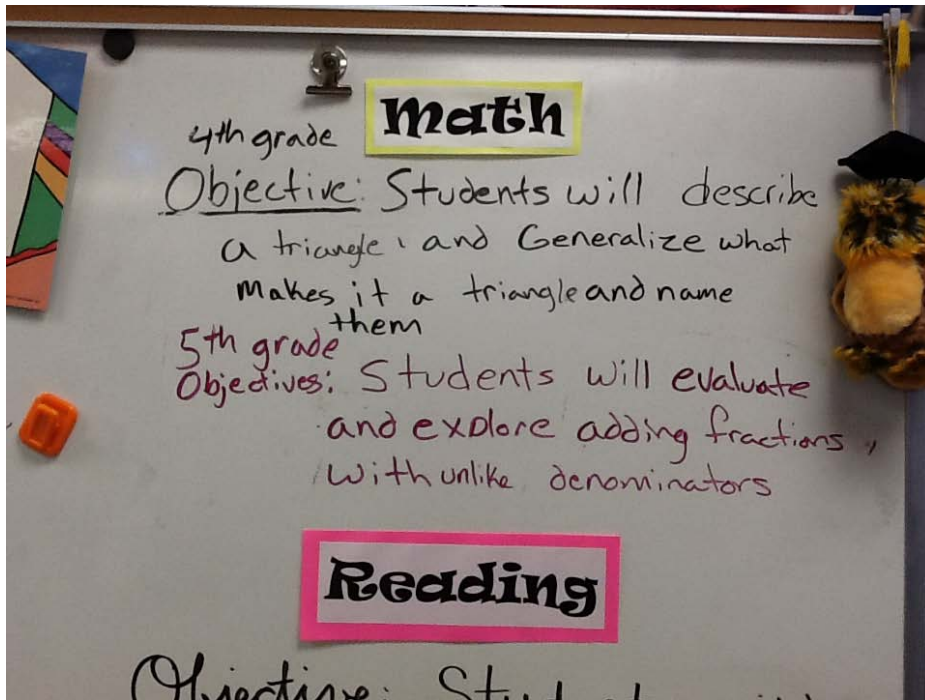 Math
4th grade
Objective: Students will describe
a triangle, and Generalize what
makes it a triangle and name
them
5th grade
Objectives: Students will evaluate
and explore adding fractions,
with unlike denominators
Reading
Objective: Students will